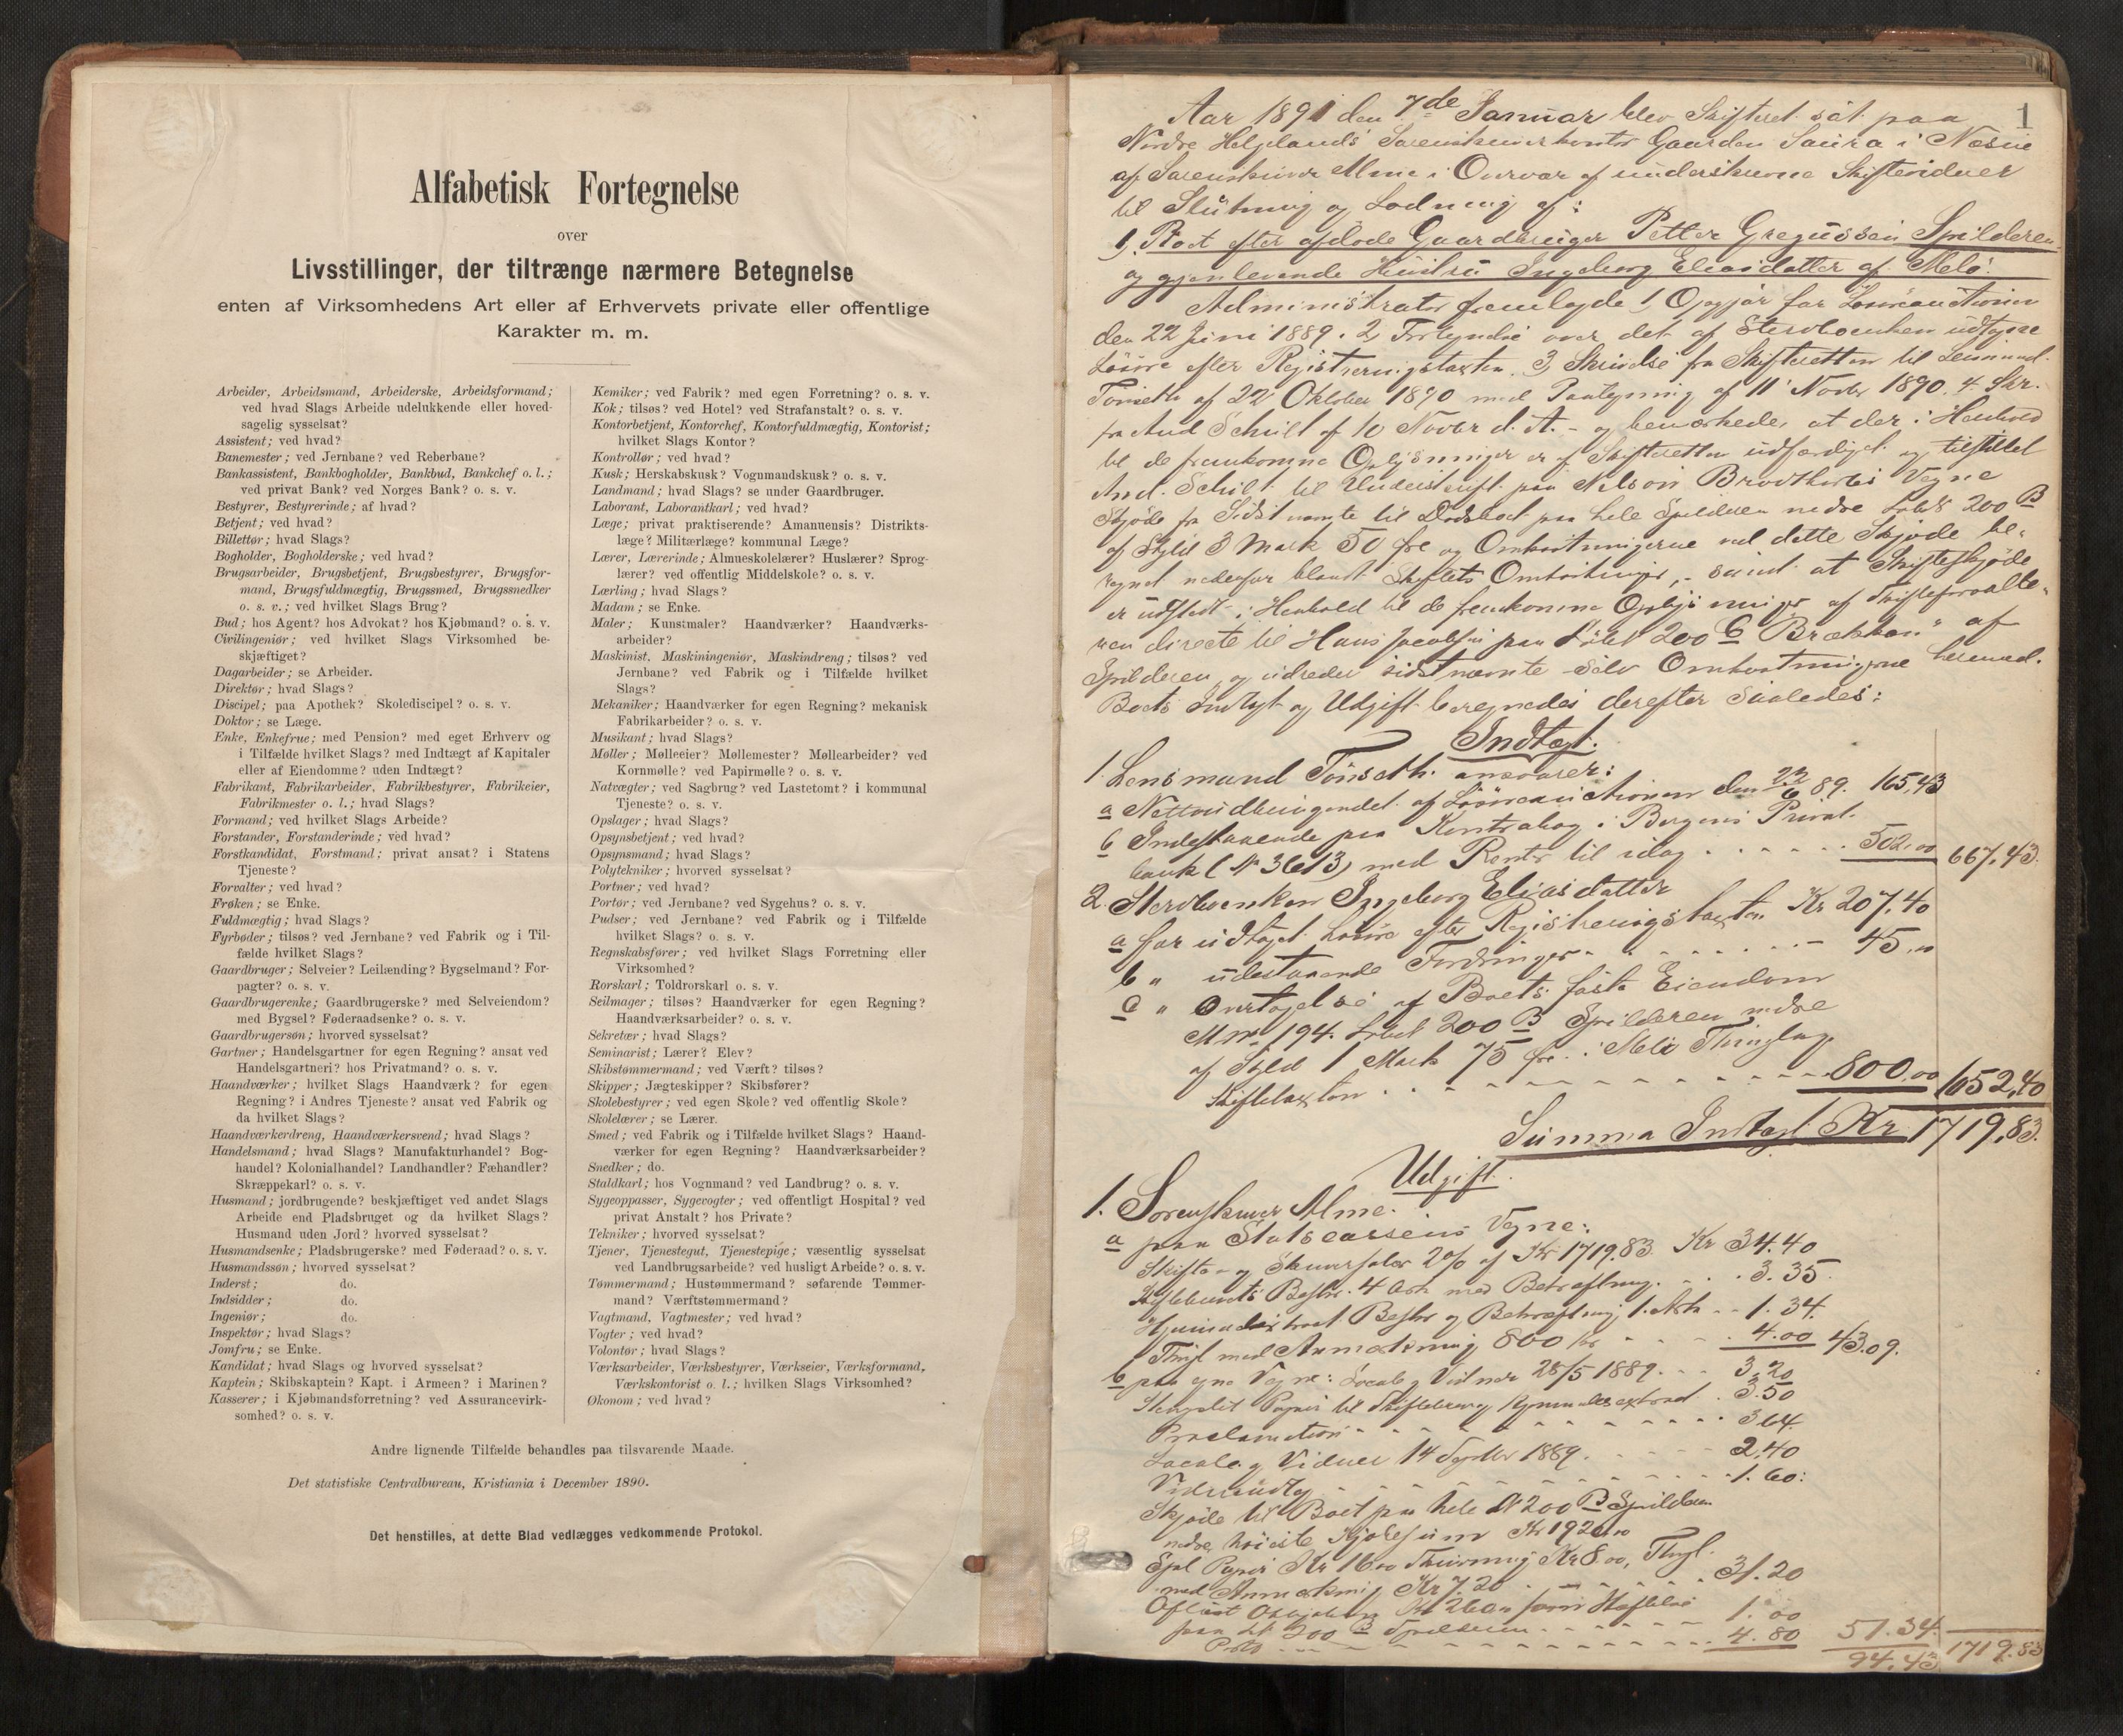 Alfabetisk Fortegnelse
over
Livsstillinger, der tiltrænge nærmere Betegnelse
enten af Virksomhedens Art eller af Erhvervets private eller offentlige
Karakter m. m.
Arbeider, Arbeidsmand, Arbeiderske, Arbeidsformand;
ved hvad Slags Arbeide udelukkende eller hoved-
sagelig sysselsat?
Assistent; ved hvad?
Banemester; ved Jernbane? ved Reberbane?
Bankassistent, Bankbogholder, Bankbud, Bankchef o. l.;
ved privat Bank? ved Norges Bank? o. s. v.
Bestyrer, Bestyrerinde; af hvad?
Betjent; ved hvad?
Billettør; hvad Slags?
Bogholder, Bogholderske; ved hvad?
Brugsarbeider, Brugsbetjent, Brugsbestyrer, Brugsfor-
mand, Brugsfuldmægtig, Brugssmed, Brugssnedker
o. s. v.; ved hvilket Slags Brug?
Bud; hos Agent? hos Advokat? hos Kjøbmand? o. s. v.
Civilingeniør; ved hvilket Slags Virksomhed be-
skjæftiget?
Dagarbeider; se Arbeider.
Direktør; hvad Slags?
Discipel; paa Apothek? Skolediscipel? o. s. v.
Doktor; se Læge.
Enke, Enkefrue; med Pension? med eget Erhverv og
i Tilfælde hvilket Slags? med Indtægt af Kapitaler
eller af Eiendomme? uden Indtægt?
Fabrikant, Fabrikarbeider, Fabrikbestyrer, Fabrikeier,
Fabrikmester o. l.; hvad Slags?
Formand; ved hvilket Slags Arbeide?
Forstander, Forstanderinde; ved hvad?
Forstkandidat, Forstmand; privat ansat? i Statens
Tjeneste?
Forvalter; ved hvad?
Frøken; se Enke.
Fuldmægtig; hvad Slags?
Fyrbøder; tilsøs? ved Jernbane? ved Fabrik og i Til-
fælde hvilket Slags?
Gaardbruger; Selveier? Leilænding? Bygselmand? For-
pagter? o. s. v.
Gaardbrugerenke; Gaardbrugerske? med Selveiendom?
med Bygsel? Føderaadsenke? o. s. v.
Gaardbrugersøn; hvorved sysselsat?
Gartner; Handelsgartner for egen Regning? ansat ved
Handelsgartneri? hos Privatmand? o. s. v.
Haandværker; hvilket Slags Haandværk? for egen
Regning? i Andres Tjeneste? ansat ved Fabrik og
da hvilket Slags?
Haandværkerdreng, Haandværkersvend; hvad Slags?
Handelsmand; hvad Slags? Manufakturhandel? Bog-
handel? Kolonialhandel? Landhandler? Fæhandler?
Skræppekarl? o. s. v.
Husmand; jordbrugende? beskjæftiget ved andet Slags
Arbeide end Pladsbruget og da hvilket Slags?
Husmand uden Jord? hvorved sysselsat?
Husmandsenke; Pladsbrugerske? med Føderaad? o. s. v.
Husmandssøn; hvorved sysselsat?
Inderst; do.
Indsidder; do.
Ingeniør; do.
Inspektør; hvad Slags?
Jomfru; se Enke.
Kandidat; hvad Slags og hvorved sysselsat?
Kaptein; Skibskaptein? Kapt. i Armeen? i Marinen?
Kasserer; i Kjøbmandsforretning? ved Assurancevirk-
somhed? o. s. v.
Kemiker; ved Fabrik? med egen Forretning? o. s. v.
Kok; tilsøs? ved Hotel? ved Strafanstalt? o. s. v.
Kontorbetjent, Kontorchef, Kontorfuldmægtig, Kontorist;
hvilket Slags Kontor?
Kontrollør; ved hvad?
Kusk; Herskabskusk? Vognmandskusk? o. s. v.
Landmand; hvad Slags? se under Gaardbruger.
Laborant, Laborantkarl; ved hvad?
Læge; privat praktiserende? Amanuensis? Distrikts-
læge? Militærlæge? kommunal Læge?
Lærer, Lærerinde; Almueskolelærer? Huslærer? Sprog-
lærer? ved offentlig Middelskole? o. s. v.
Lærling; hvad Slags?
Madam; se Enke.
Maler; Kunstmaler? Haandværker? Haandværks-
arbeider?
Maskinist, Maskiningeniør, Maskindreng; tilsøs? ved
Jernbane? ved Fabrik og i Tilfælde hvilket
Slags?
Mekaniker; Haandværker for egen Regning? mekanisk
Fabrikarbeider? o. s. v.
Musikant; hvad Slags?
Møller; Mølleeier? Møllemester? Møllearbeider? ved
Kornmølle? ved Papirmølle? o. s. v.
Natvægter; ved Sagbrug? ved Lastetomt? i kommunal
Tjeneste? o. s. v.
Opslager; hvad Slags?
Opsynsbetjent; ved hvad?
Opsynsmand; hvad Slags?
Polytekniker; hvorved sysselsat?
Portner; ved hvad?
Portør; ved Jernbane? ved Sygehus? o. s. v.
Pudser; ved Jernbane? ved Fabrik og i Tilfælde
hvilket Slags? o. s. v.
Regnskabsfører; ved hvilket Slags Forretning eller
Virksomhed?
Rorskarl; Toldrorskarl o. s. v.
Seilmager; tilsøs? Haandværker for egen Regning?
Haandværksarbeider? o. s. v.
Sekretær; hvad Slags?
Seminarist; Lærer? Elev?
Skibstømmermand; ved Værft? tilsøs?
Skipper; Jægteskipper? Skibsfører?
Skolebestyrer; ved egen Skole? ved offentlig Skole?
Skolelærer; se Lærer.
Smed; ved Fabrik og i Tilfælde hvilket Slags? Haand-
værker for egen Regning? Haandværksarbeider?
Snedker; do.
Staldkarl; hos Vognmand? ved Landbrug? o. s. v.
Sygeoppasser, Sygevogter; ved offentligt Hospital? ved
privat Anstalt? hos Private?
Tekniker; hvorved sysselsat?
Tjener, Tjenestegut, Tjenestepige; væsentlig sysselsat
ved Landbrugsarbeide? ved husligt Arbeide? o. s. v.
Tømmermand; Hustømmermand? søfarende Tømmer-
mand? Værftstømmermand?
Vagtmand, Vagtmester; ved hvad?
Vogter; ved hvad?
Volontør; hvad Slags?
Værksarbeider, Værksbestyrer, Værkseier, Værksformand,
Værkskontorist o. l.; hvilken Slags Virksomhed?
Økonom; ved hvad?
Andre lignende Tilfælde behandles paa tilsvarende Maade.
Det statistiske Centralbureau, Kristiania i December 1890.
Det henstilles, at dette Blad vedlægges vedkommende Protokol.
1
Aar 1891 den 7de Januar blev Skifteret sat paa
Nordre Helgelands Sorenskriverkontor Gaarden Saura i Næsne
af Sorenskriver Alme i Overvær af underskrevne Skiftevidner
til Slutning og Lodning af:
1, Boet efter afdøde Gaardbruger Petter Gregussen Spilderen
og gjenlevende Hustru Ingeborg Eliasdatter af Melø.
Administrator fremlagde 1, Opgjør for Løsøreauctionen
den 22 Juni 1889. 2, over det af Stervboenken udtagne
Løsøre efter Registreringstaxten. 3, Skrivelse fra Skifteretten til Lensmand
Tönseth af 22 Oktober 1890 med Paategning af 11 Novbr 1890. 4. Skr.
fra And Schult af 10 Novbr d. A. - og bemærkede, at der i Henhold
til de fremkomne Oplysninger er af Skifteretten udfærdiget og tilstillet
And. Schult til Underskrift paa Nelson Vegne
Skjøde fra Sidstnævnte til Dødsboet paa hele Spilderen nedre Løbe 200 B
af Skyld 3 Mark 50 øre og Omkostningerne ved dette Skjøde be-
regnet nedenfor blandt Skiftets Omkostninger, - samt at Skifteskjøde
er udstedt i Henhold til de fremkomne Oplysninger af Skifteforvalte-
ren directe til Hans Jacobsen paa Løbe 200 C Brækkan" af
Spilderen, og udreder sidstnævnte selv Omkostningerne herved.
Boets Indtægt og Udgift beregnedes derefter saaledes:
Indtægt.
1. Lensmand Tönseth. ansvarer:
a Nettoudbringendet af Løsøreauctionen den 22/6 89. 165.43
b Indestaaende paa Kontrabog i Bergens Privat-
bank (N 3613) med Renter til idag 502.00 667.43
2. Stervboenken Ingeborg Eliasdatter
a for udtaget Løsøre efter Registreringstaxten Kr 207.40
b " udestaaende Fordringer 45.00
c " Overtagelse af Boets faste Eiendom
M no 194. Løbet 200 B Spilderen nedre
af Skyld 1 Mark 75 øre i Melø Thinglag.
Skiftetaxten 800.00 1052.40
Summa Indtægt Kr 1719.83.
Udgift.
1. Sorenskriver Alme.
a paa Statscassens Vegne:
Skifte- og Skriversalær 2% af Kr 1719.83 Kr 34.40
Skiftebrevets Beskr. 4 Ark med Bekræftning. 3.35
Beskr og Bekræftning 1. Ark 1.34.
Thingl med Anmerkning 800 kr 4.00 43.09.
b paa egne Vegne: Locale og Vidner 28/5 1889. 3.20
Stemplet Papir til Skiftebrev og 3.50
Proclamation 3.64.
Locale og Vidner 14 Septbr 1889. 2.40
1.60:
Skjøde til Boet paa hele N 200 B Spilderen
nedre, høieste Kjøbesum Kr 1920.00
Spl Papir Kr 16.00 Skrivning Kr 8.00, Thgl.
med Anmerkning Kr 7.20 31.20
1.00
paa Løb 200 B Spilderen
Porto 4.80 51.34. 1719.83
94.43